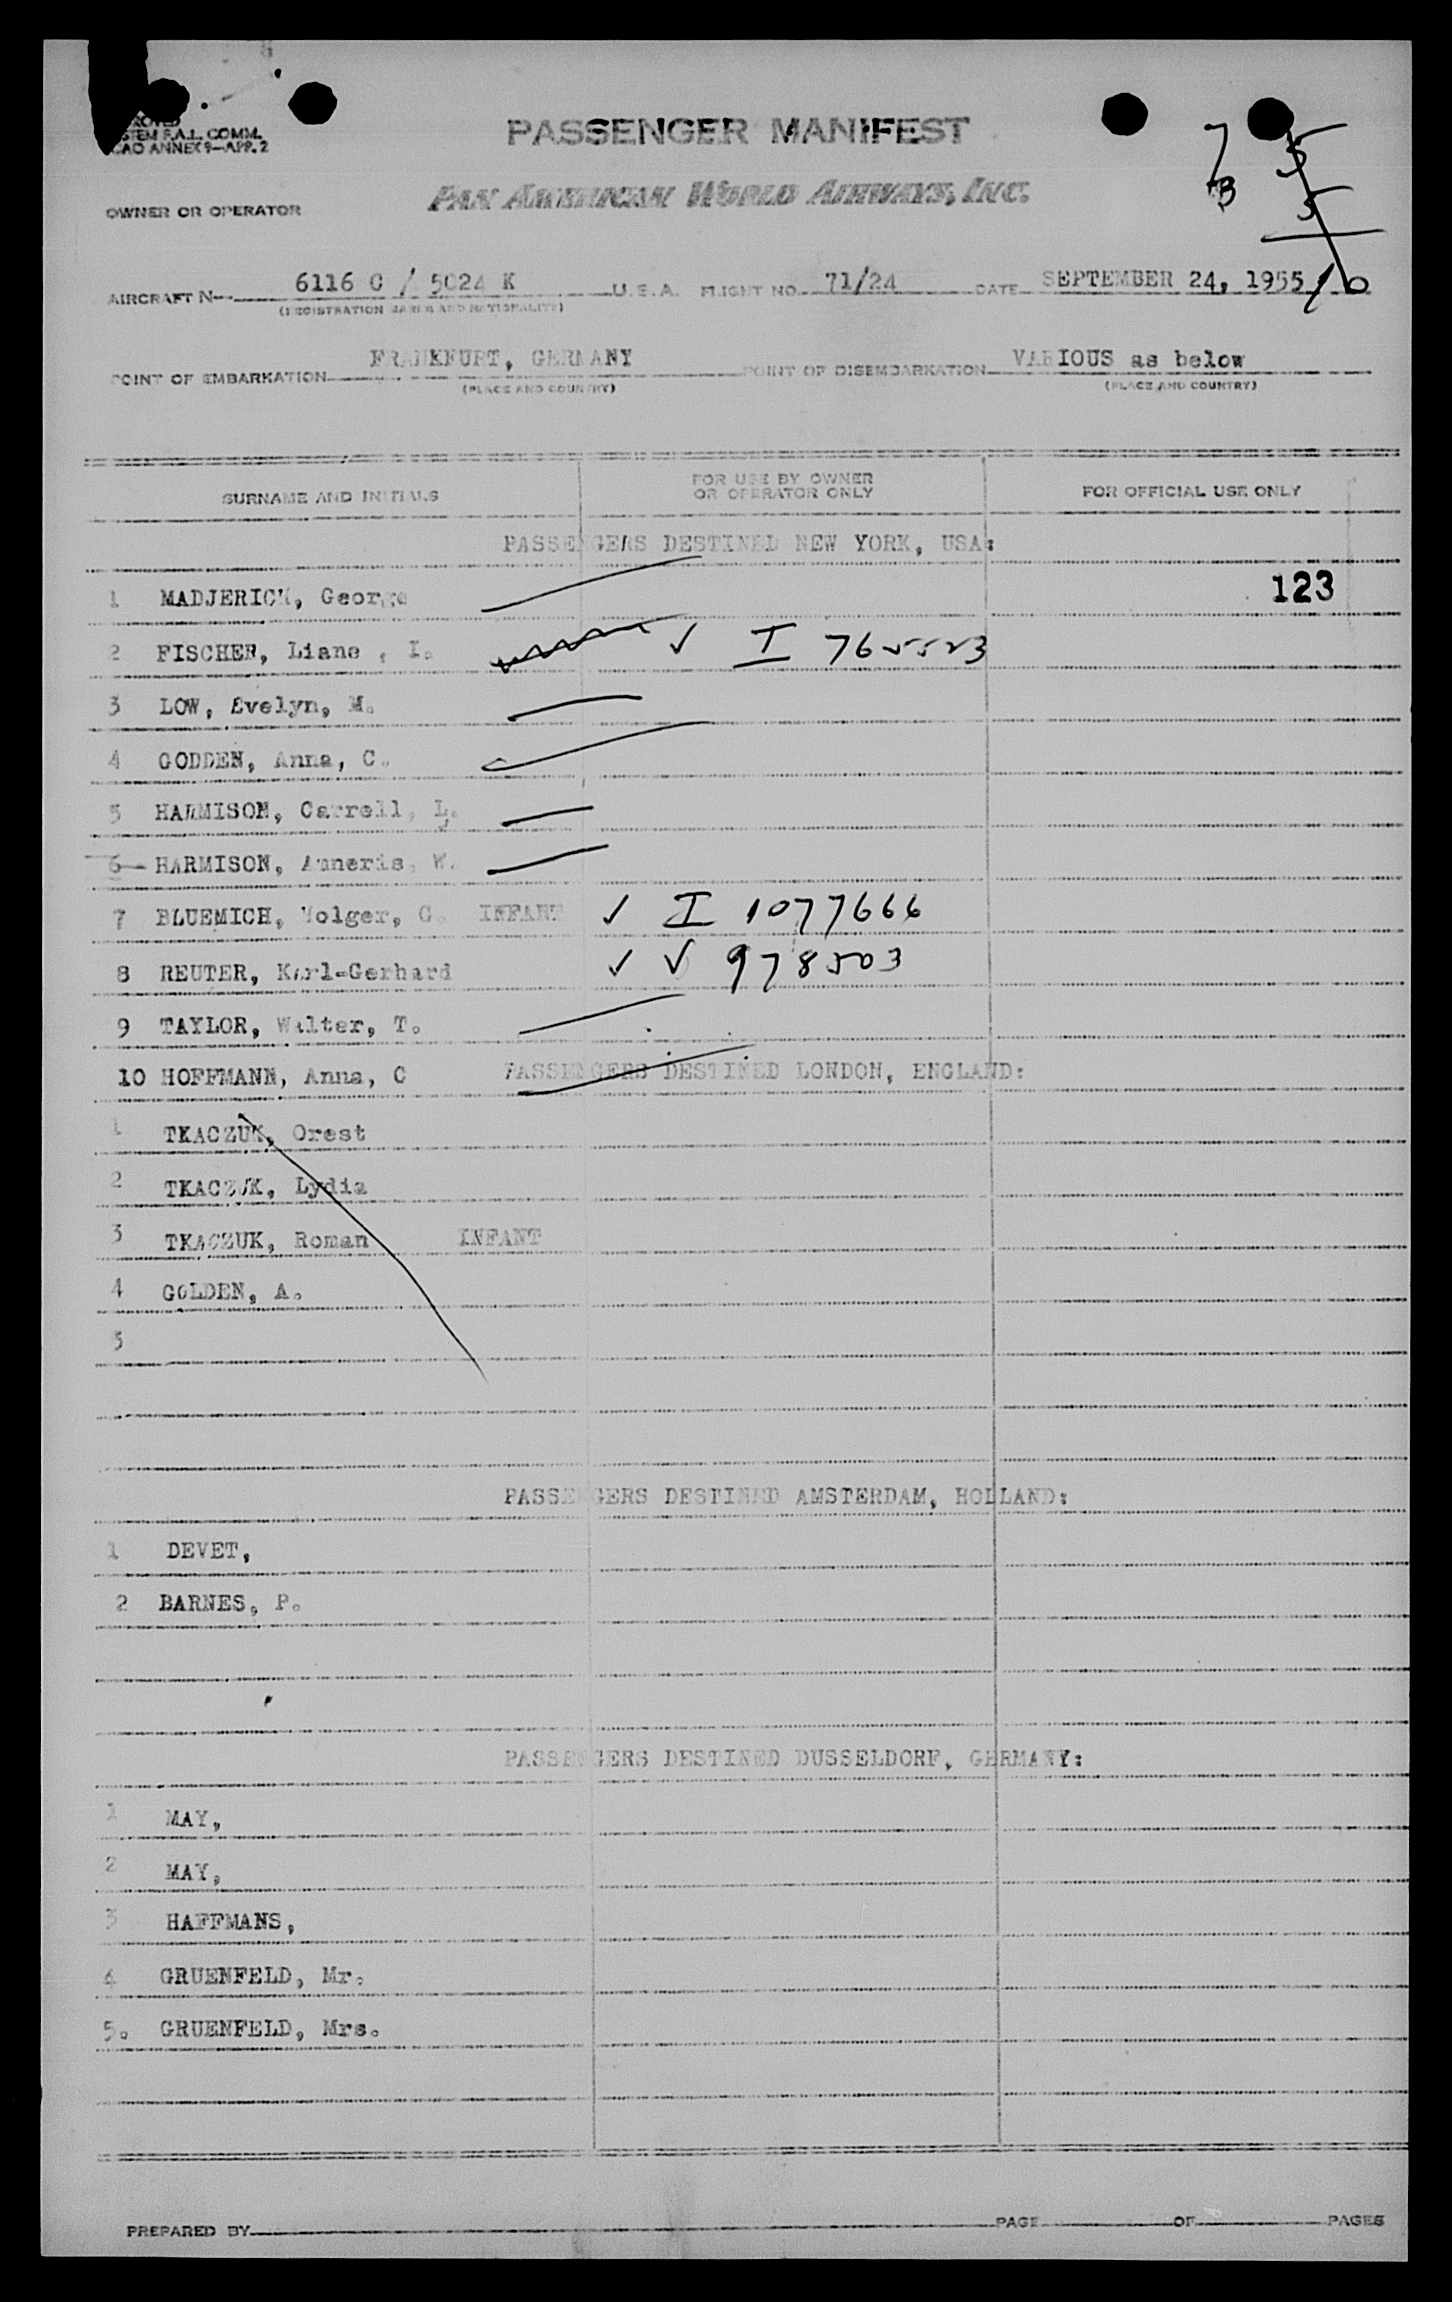 PASSENGER MANIFEST
SYSTEM F.A.L. COMM.
ICAO ANNEX 9—APP. 2
OWNER OR OPERATOR
PAN AMERICAN WORLD AIRWAYS, INC.
7 5
B 5
10
AIRCRAFT No. 6116 C / 5024 K U.S.A. FLIGHT NO. 71/24 DATE SEPTEMBER 24, 1955
(REGISTRATION MARKS AND NATIONALITY)
POINT OF EMBARKATION FRANKFURT, GERMANY POINT OF DISEMBARKATION VARIOUS as below
(PLACE AND COUNTRY) (PLACE AND COUNTRY)
SURNAME AND INITIALS FOR USE BY OWNER OR OPERATOR ONLY FOR OFFICIAL USE ONLY
PASSENGERS DESTINED NEW YORK, USA:
1 MADJERICK, George 123
2 FISCHER, Liane , I. ✓ I 765523
3 LOW, Evelyn, M.
4 GODDEN, Anna, C.
5 HARMISON, Carrell, L.
6 HARMISON, Anneris, W.
7 BLUEMICH, Holger, G. INFANT ✓ I 1077666
8 REUTER, Karl-Gerhard ✓ V 978503
9 TAYLOR, Walter, T.
10 HOFFMANN, Anna, C PASSENGERS DESTINED LONDON, ENGLAND:
1 TKACZUK, Orest
2 TKACZUK, Lydia
3 TKACZUK, Roman INFANT
4 GOLDEN, A.
5
PASSENGERS DESTINED AMSTERDAM, HOLLAND:
1 DEVET,
2 BARNES, P.
PASSENGERS DESTINED DUSSELDORF, GERMANY:
1 MAY,
2 MAY,
3 HAFFMANS,
4 GRUENFELD, Mr.
5. GRUENFELD, Mrs.
PREPARED BY PAGE OF PAGES